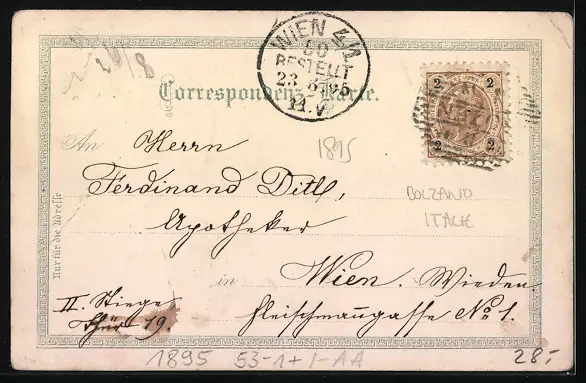 WIEN 4/1
50
BESTELLT
23. 8. 95
11.V
Correspondenz-Karte.
2 2
2 2
An Herrn
1895
Ferdinand Dittl,
BOLZANO
ITALIE
Apotheker
in Wien. Wieden
II. Stiege Fleischmanngasse No 1.
Thür 19.
Nur für die Adresse
1895 53-1+1-AA
28.-